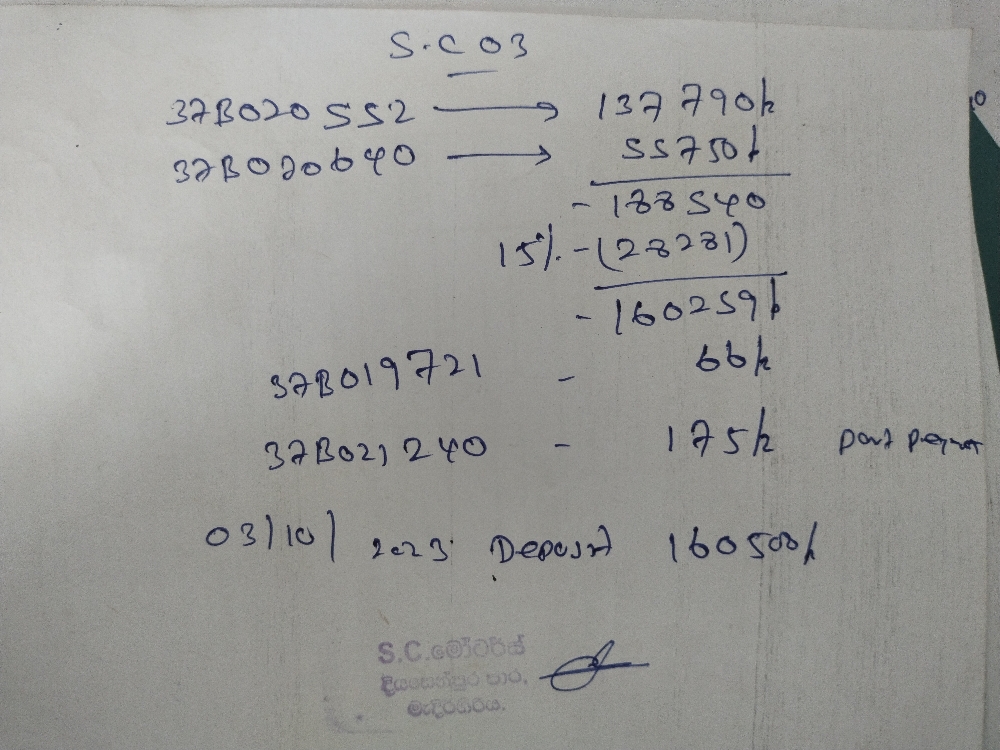 S.C 03
37B020552 → 137790/-
37B020640 → 55750/-
- 188540
15%. - (28281)
- 160259/-
37B019721 - 66/-
37B021240 - 175/- part payment
03/10/2023 Deposit 160500/-
S.C.මෝටර්ස්
දියසෙන්පුර පාර,
මැදිරිගිරිය.